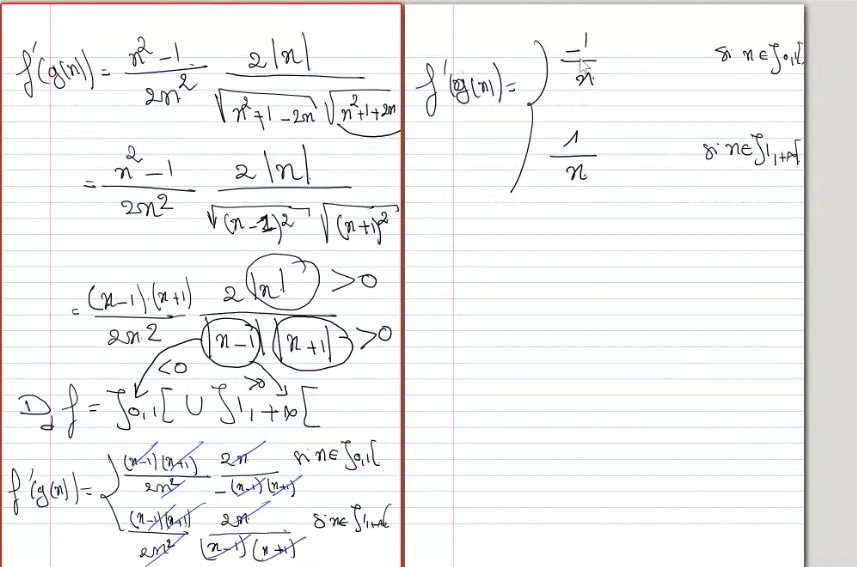 f'(g(x)) = \frac{x^2 - 1}{2x^2} \frac{2|x|}{\sqrt{x^2+1-2x} \sqrt{x^2+1+2x}}
= \frac{x^2 - 1}{2x^2} \frac{2|x|}{\sqrt{(x-1)^2} \sqrt{(x+1)^2}}
= \frac{(x-1) \cdot (x+1)}{2x^2} \frac{2|x|}{|x-1| |x+1|} >0 >0
<0 >0
D_d f = ]0,1[ ∪ ]1,+∞[
f'(g(x)) = { \frac{(x-1)(x+1)}{2x^2} \frac{2x}{-(x-1)(x+1)} si x ∈ ]0,1[
\frac{(x-1)(x+1)}{2x^2} \frac{2x}{(x-1)(x+1)} si x ∈ ]1,+∞[
f'(g(x)) = { \frac{-1}{x} si x ∈ ]0,1[
\frac{1}{x} si x ∈ ]1,+∞[